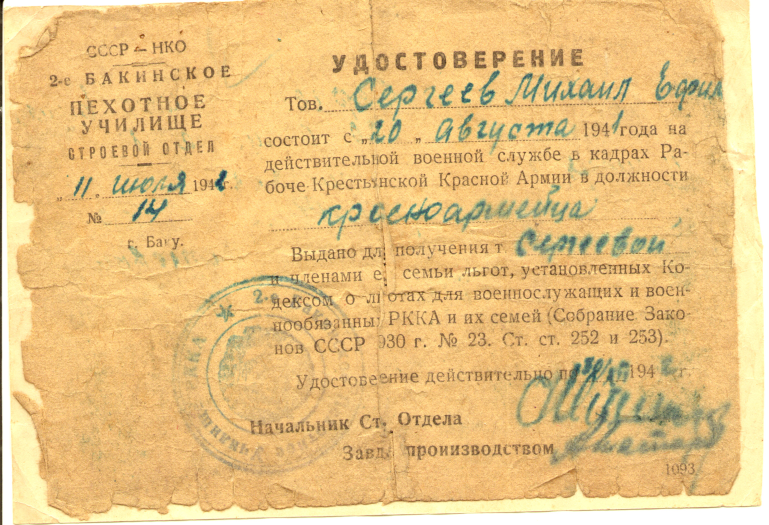 СССР – НКО
2-е БАКИНСКОЕ
ПЕХОТНОЕ
УЧИЛИЩЕ
СТРОЕВОЙ ОТДЕЛ
„11 июля 1942г.
№ 14
г. Баку.
УДОСТОВЕРЕНИЕ
Тов. Сергеев Михаил Ефим
состоит с „20„ августа 1941года на
действительной военной службе в кадрах Ра-
боче-Крестьянской Красной Армии в должности
красноармейца
Выдано для получения т. Сергеевой
и членами е семьи льгот, установленных Ко-
дексом о льготах для военнослужащих и воен-
нообязанны РККА и их семей (Собрание Зако-
нов СССР 930 г. № 23. Ст. ст. 252 и 253).
Удостовеение действительно по 194 г.
Начальник Ст. Отдела
Завд. производством
1093
2-е